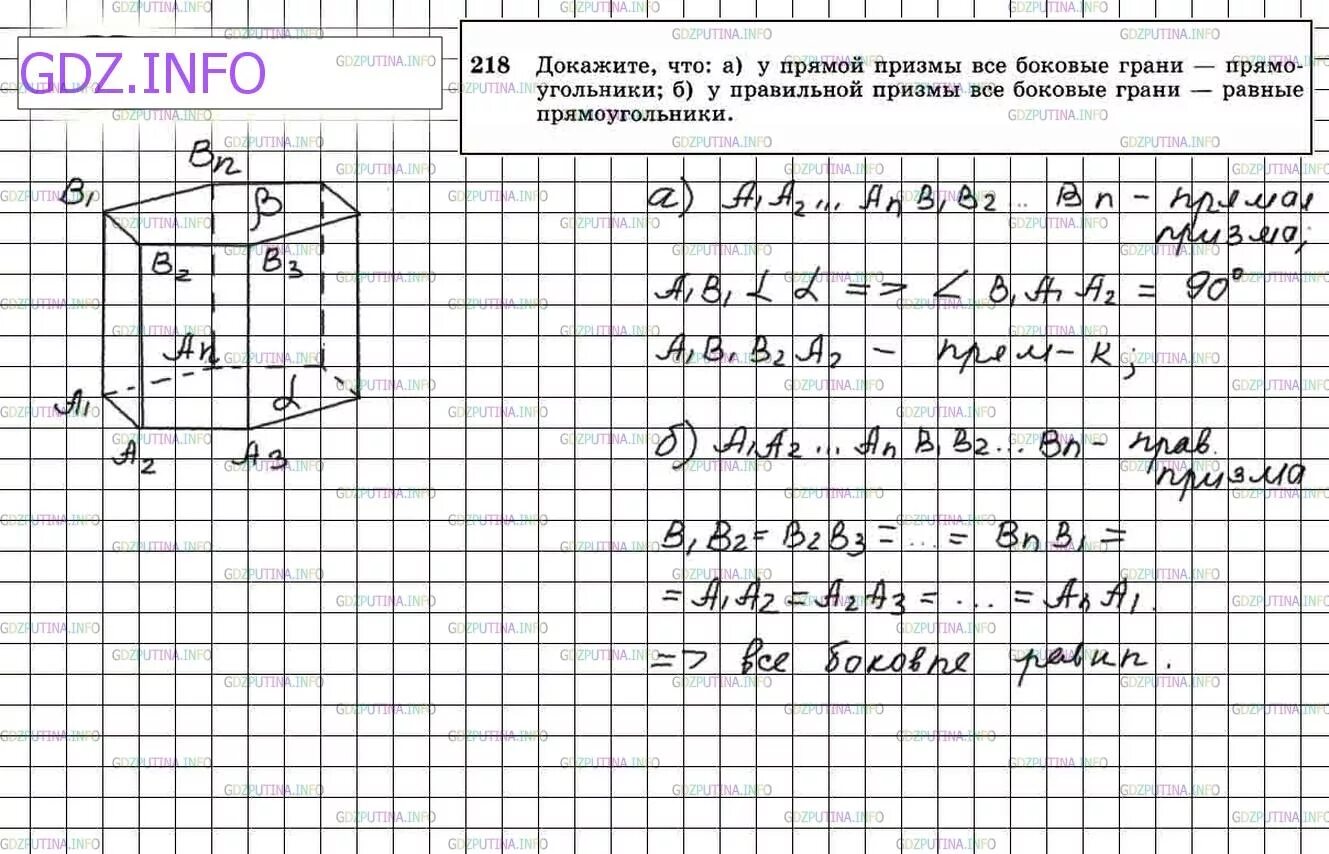 GDZ.INFO
218 Докажите, что: а) у прямой призмы все боковые грани — прямо-
угольники; б) у правильной призмы все боковые грани — равные
прямоугольники.
Bn
B1
β
B2
B3
An
A1
α
A2
A3
а) A1A2... AnB1B2... Bn - прямая
призма;
A1B1 ⊥ α => ∠ B1A1A2 = 90°
A1B1B2A2 - прям-к;
б) A1A2... AnB1B2... Bn - прав.
призма
B1B2 = B2B3 = ... = BnB1 =
= A1A2 = A2A3 = ... = AnA1.
=> все боковые
GDZPUTINA.INFO